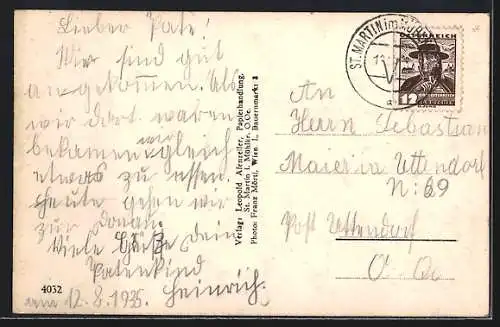 Lieber Pate!
Wir sind gut
angekommen. Als
wir dort waren
bekamen wir gleich
etwas zu essen.
Heute gehen wir
zur Donau.
Viele Grüße Dein
Patenkind
Heinrich.
am 12.8.1935.
4032
Verlag: Leopold Almseller, Papierhandlung,
St. Martin i. Mühlkr. O.Oe.
Photo: Franz Mörtl, Wien I., Bauernmarkt 3
ST. MARTIN im MÜHL
ÖSTERREICH
12
An
Herrn Sebastian
Maier in Uttendorf
N: 69
Post Uttendorf
O. Oe.